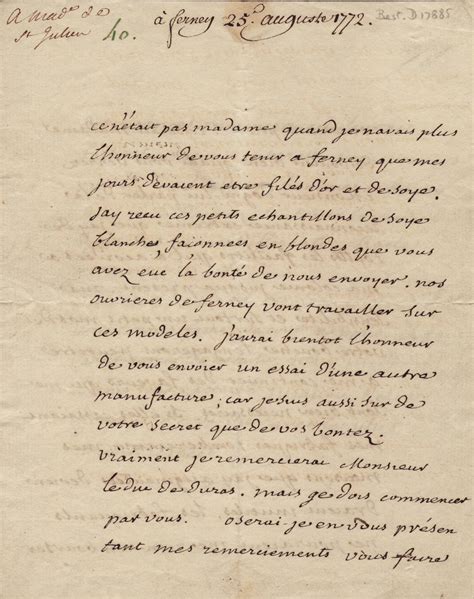 A mad.e de
St Julien 40.
à ferney 25.e auguste 1772.
Best. D17885
ce n'était pas madame quand je navais plus
lhonneur de vous tenir a ferney que mes
jours dévaient etre filés d'or et de soye.
jay recu ces petits echantillons de soye
blanches, faconnées en blondes que vous
avez eue la bonté de nous envoyer. nos
ouvrieres de ferney vont travailler sur
ces modeles. j'aurai bientot lhonneur
de vous envoier un essai d'une autre
manufacture; car je suis aussi sur de
votre secret que de vos bontez.
vraiment je remercierai Monsieur
le duc de duras. mais ge dois commencer
par vous. oserai-je en vous présen
tant mes remerciements vous faire